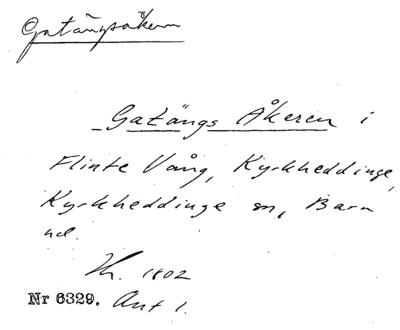 Gatängsåkern
Gatängs Åkeren i
Flinte Vång, Kyrkheddinge,
Kyrkheddinge sn, Bara
hd.
Kh. 1802
Nr 6329. Akt 1.